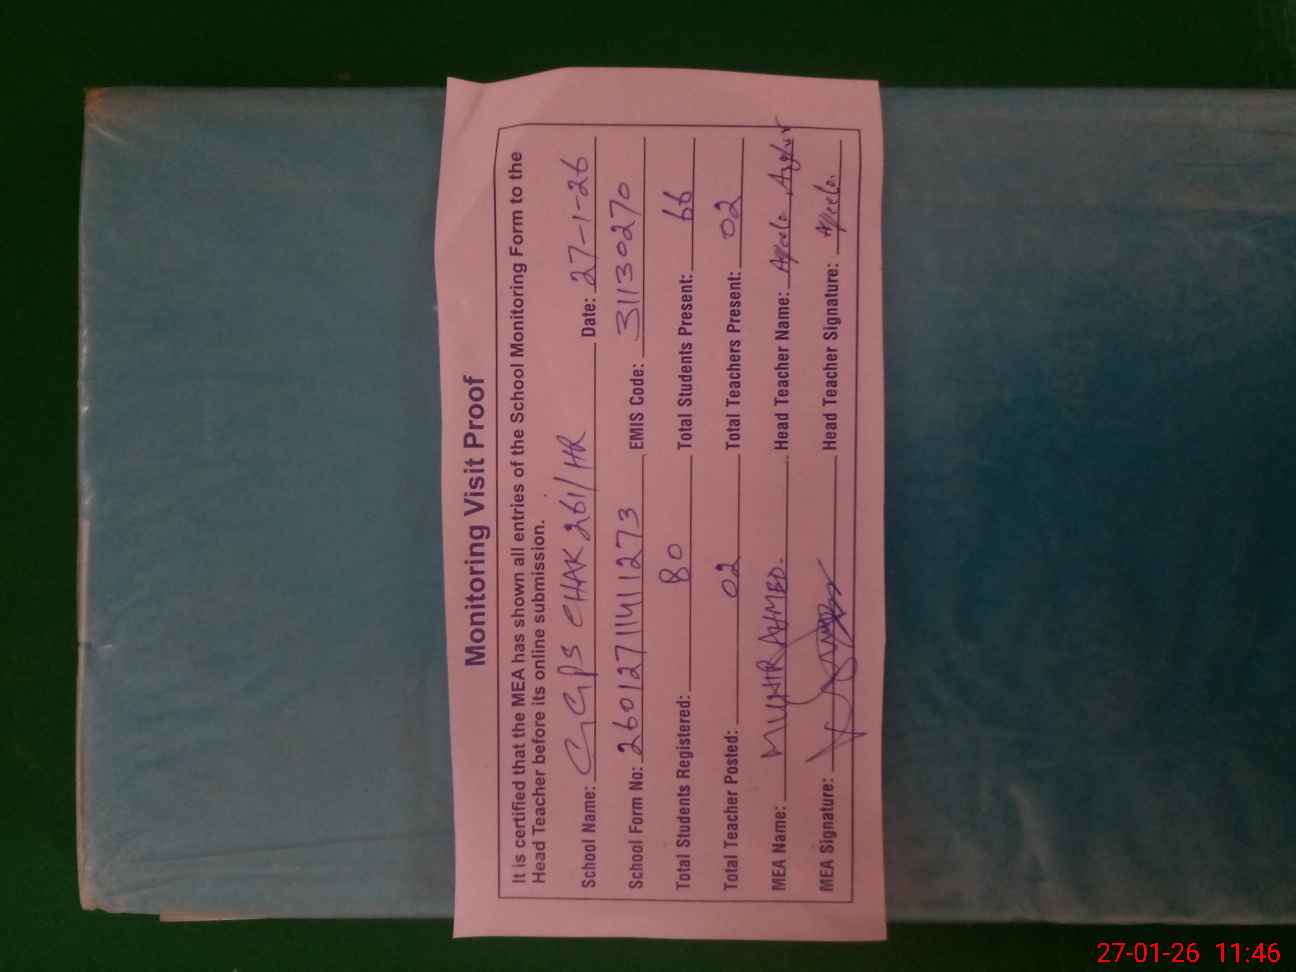 Monitoring Visit Proof
It is certified that the MEA has shown all entries of the School Monitoring Form to the
Head Teacher before its online submission.
School Name: GGPS CHAK 261/HR Date: 27-1-26
School Form No: 26012711411273 EMIS Code: 31130270
Total Students Registered: 80 Total Students Present: 66
Total Teacher Posted: 02 Total Teachers Present: 02
MEA Name: MUNIR AHMED. Head Teacher Name:
MEA Signature: Head Teacher Signature:
27-01-26 11:46